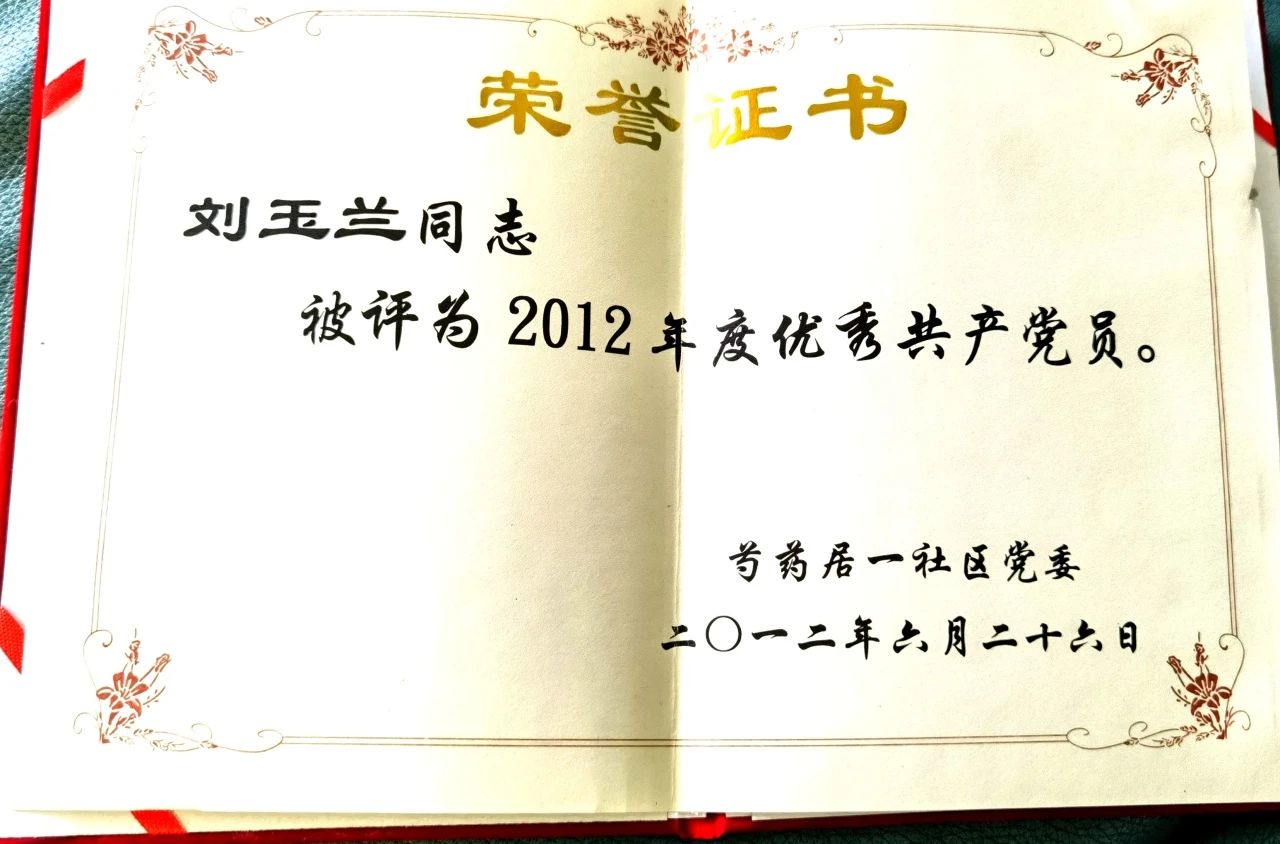 荣誉证书
刘玉兰同志
被评为2012年度优秀共产党员。
芍药居一社区党委
二〇一二年六月二十六日